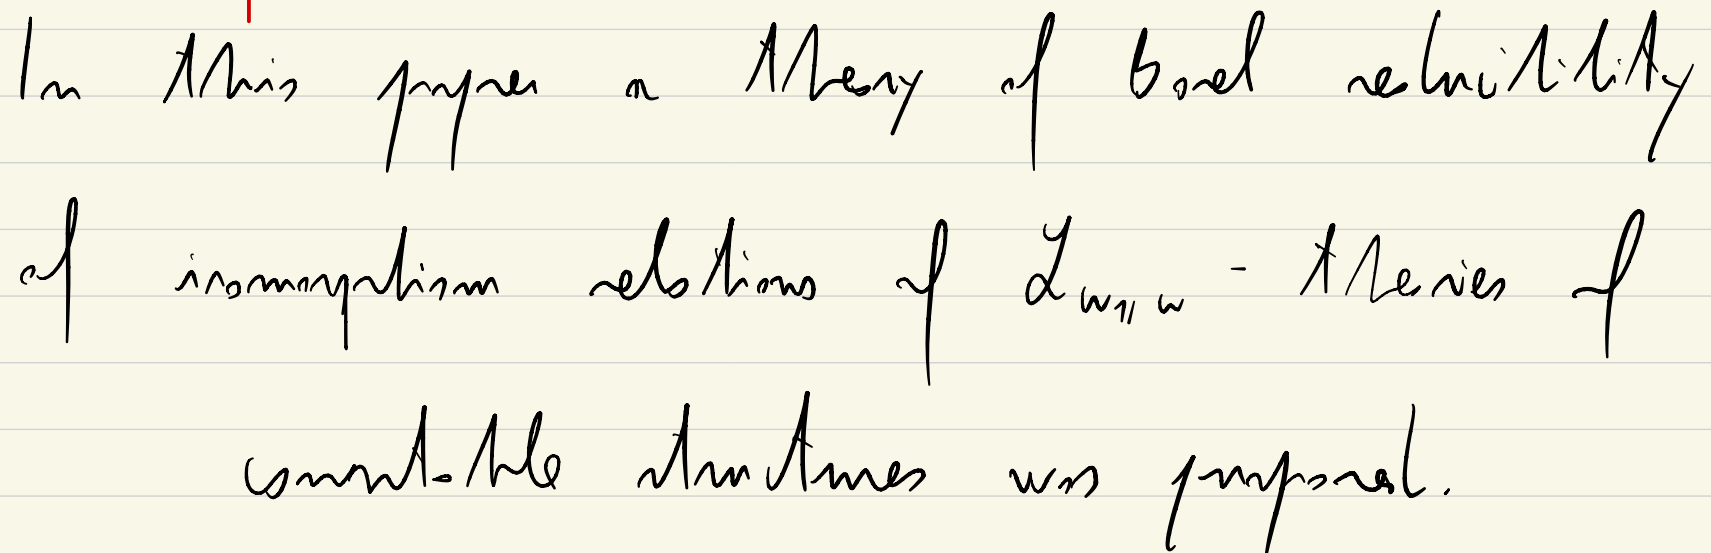 In this paper a theory of Borel reducibility
of isomorphism relations of $\mathcal{L}_{\omega_1, \omega}$ - theories of
countable structures was proposed.